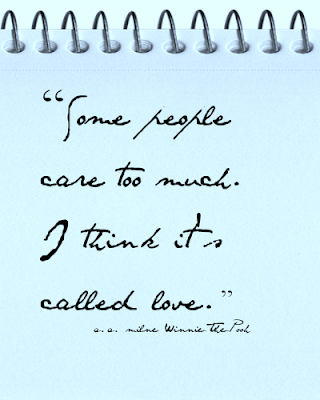 “Some people
care too much.
I think it's
called love.”
a.a. milne Winnie the Pooh